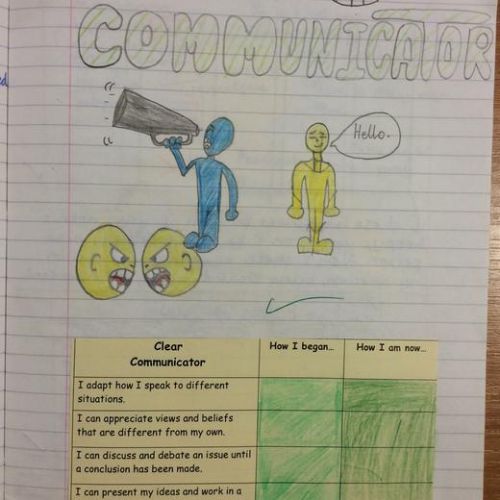 COMMUNICATOR
Hello.
Clear
Communicator
How I began...
How I am now...
I adapt how I speak to different
situations.
I can appreciate views and beliefs
that are different from my own.
I can discuss and debate an issue until
a conclusion has been made.
I can present my ideas and work in a